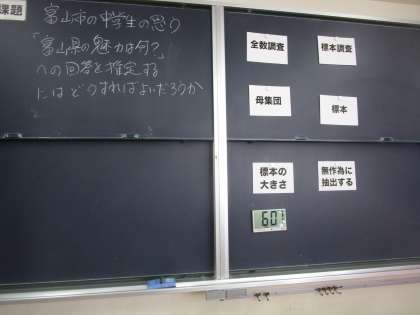 課題
富山市の中学生の思う
「富山県の魅力は何?」
への回答を推定する
にはどうすればよいだろうか
全数調査
標本調査
母集団
標本
標本の
大きさ
無作為に
抽出する
60